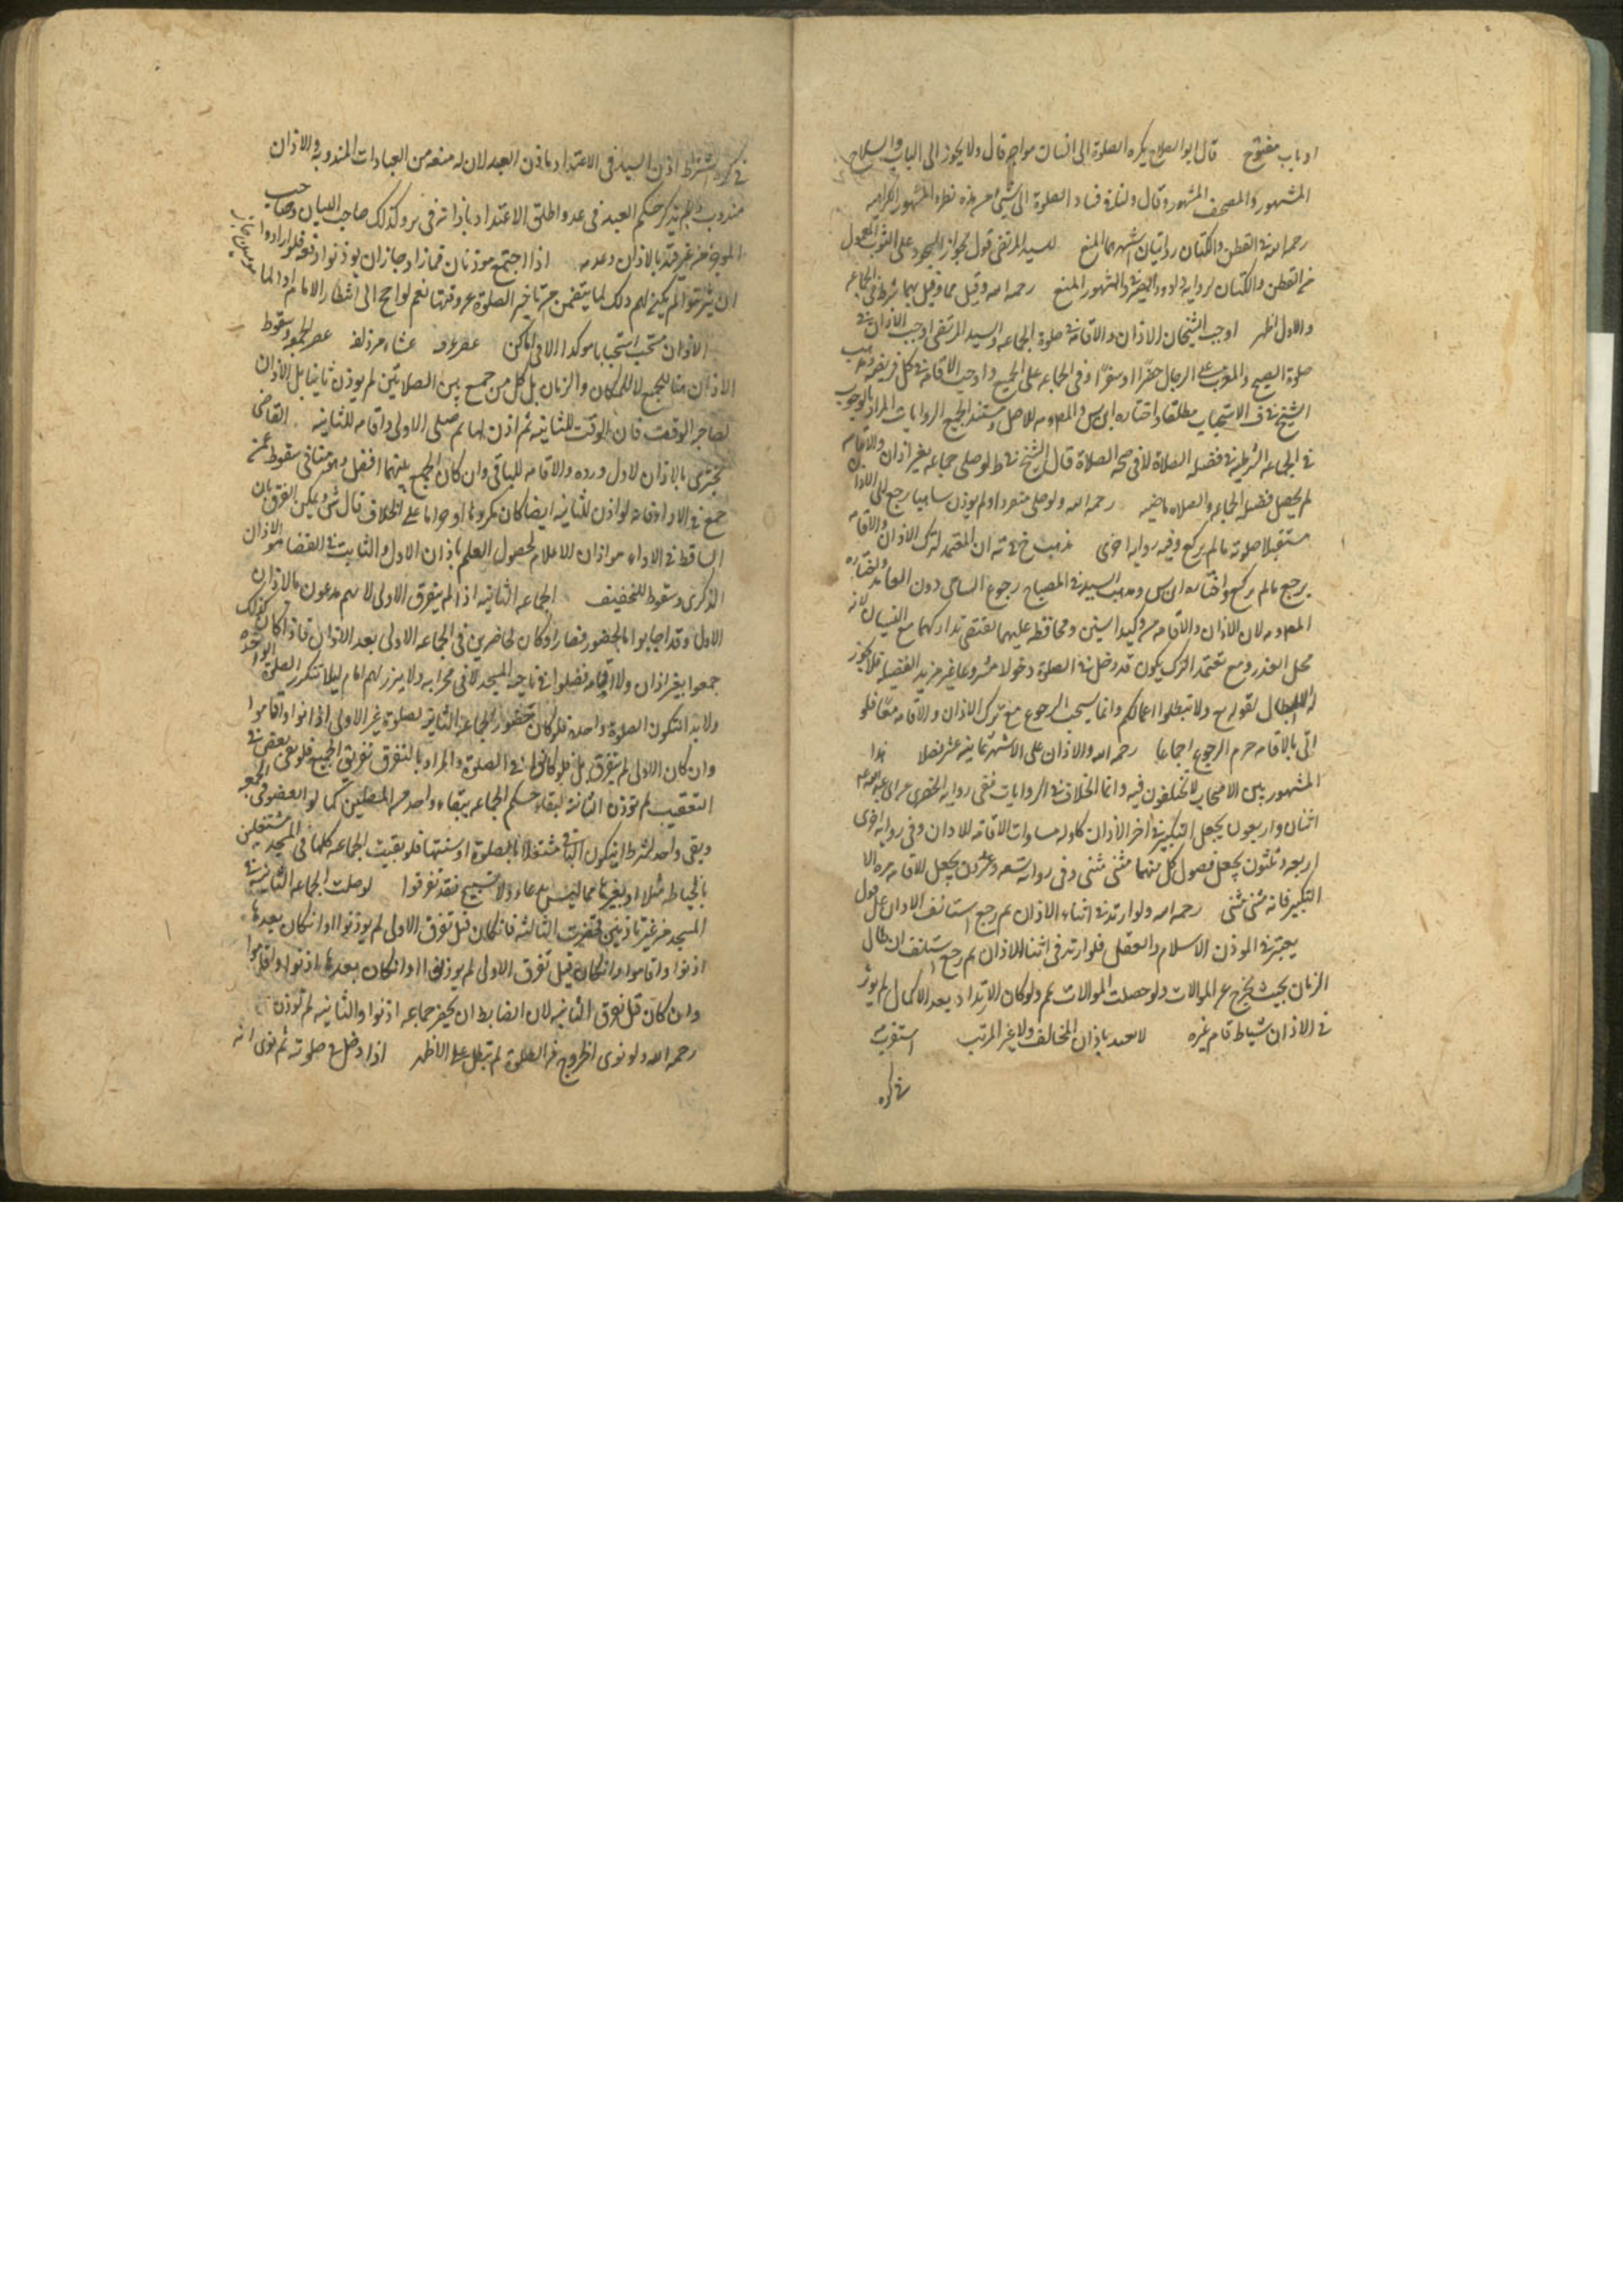 او باب مفتوح قال ابو الصلاح يكره الصلوة الى انسان مواجه قال ولا يجوز الى الباب والسلاح
المشهور والمصحف المشهور وقال ولنا في فساد الصلوة الى شئ من هذه نظر والمشهور الكراهيه
رحمه الله في القطن والكتان روايتان اشهرهما المنع للسيد المرتضى قول بجواز السجود على الثوب المعمول
من القطن والكتان لرواية داود الصرمى والمشهور المنع رحمه الله وقيل هما شرط في الجماعه
والاول اظهر اوجب الشيخان الاذان والاقامة في صلوة الجماعه والسيد المرتضى اوجب الاذان في
صلوة الصبح والمغرب على الرجال حضرا او سفرا وفى الجماعه على الجميع واوجب الاقامة في كل فريضه وذهب
الشيخ في ف الاستحباب مطلقا واختاره ابن س والمص وم للاصل ومستند الجميع الروايات المراد بالوجوب
في الجماعه الشرطية في فضيله الصلاة لا في صحه الصلاة قال الشيخ في ط لو صلى جماعه بغير اذان والاقامه
لم يحصل فضيله الجماعه والصلاه ماضيه رحمه الله ولو صلى منفردا ولم يؤذن ساهيا رجع الى الاذان
مستقبلا صلوته ما لم يركع وفيه روايه اخرى مذهب خ في ته ان المتعمد لترك الاذان والاقامه
يرجع ما لم يركع واختاره ابن س ومذهب السيد في المصباح رجوع الساهى دون العامد واختاره
المص وم لان الاذان والاقامه من وكيد السنن ومحافظه عليهما يقتضى تداركهما مع النسيان لانه
محل العذر ومع تعمد الترك يكون قد دخل في الصلوة دخولا مشروعا غير مريد الفضيله فلا يجوز
له الابطال لقوله تع ولا تبطلوا اعمالكم وانما يستحب الرجوع مع ترك الاذان والاقامه معا فلو
اتى بالاقامه حرم الرجوع اجماعا رحمه الله والاذان على الاشهر ثمانيه عشر فصلا هذا
المشهور بين الاصحاب لا يختلفون فيه وانما الخلاف في الروايات ففى روايه الحضرمى عن ابى عبد الله ع
اثنان واربعون يجعل التكبير في اخر الاذان كاوله مساوات الاقامه للاذان وفى روايه اخرى
اربعه وثلثون يجعل فصول كل منهما مثنى مثنى وفى روايه تسعه وعشرون يجعل الاقامه مره الا
التكبير فانه مثنى مثنى رحمه الله ولو ارتد في اثناء الاذان ثم رجع استانف الاذان على قول
يعتبر في المؤذن الاسلام والعقل فلو ارتد فى اثناء الاذان ثم رجع استانف ان طال
الزمان بحيث يخرج عن الموالات ولو حصلت الموالات تم ولو كان الارتداد بعد الاكمال لم يؤثر
في الاذان شياط قام غيره لا يعتد باذان المخالف ولا غير المرتب استقرب
في كره
في كره اشتراط اذن السيد فى الاعتداد باذن العبد لان له منعه من العبادات المندوبه والاذان
مندوب ولم يذكر حكم العبد فى عد واطلق الاعتداد باذانه فى ير وكذلك صاحب البيان وصاحب
الموجز من غير قيد بالاذن وعدمه اذا اجتمع موذنان فما زاد جاز ان يؤذنوا دفعة فلو ارادوا
ان يترتبوا لم يكن لهم ذلك لما يتضمن من تاخير الصلوة عن وقتها نعم لو احتج الى انتظار الامام او المامومين جاز
الاذان مستحب استحبابا موكدا الا فى اماكن عصر عرفه عشاء مزدلفه عصر الجمعه وسقوط
الاذان هنا للجمع لا للمكان والزمان بل كل من جمع بين الصلاتين لم يؤذن ثانيا بل الاذان
لصاحبة الوقت فان الوقت للثانيه ثم اذن لها ثم صلى الاولى واقامه للثانيه القاضى
يجتزى بالاذان لاول ورده والاقامه للباقى وان كان الجمع بينهما افضل وهو متنافى سقوطه عمن
جمع في الاداء وفاته لو اذن للثانيه ايضا كان مكروها او حراما على الخلاف قال ش ويمكن الفرق بان
الساقط في الاداء هو اذان الاعلام لحصول العلم باذان الاول والثابت في القضاء هو الاذان
الذكرى وسقوط للتخفيف الجماعه الثانيه اذا لم يتفرق الاولى لانهم مدعون بالاذان
الاول وقد اجابوا بالحضور فصاروا كان لحاضرين فى الجماعه الاولى بعد الاذان فاذا كان كذلك
جمعوا بغير اذان ولا اقامه فصلوا في ناحيه المسجد لا فى محرابه ولا يبرز لهم امام ليلا تتكرر الصلوة الواحده
ولا بد ان تكون الصلوة واحدة فلو كان بحضور الجماعه الثانيه لصلوة غير الاولى اذنوا واقاموا
وان كان الاولى لم يتفرق بل فلو كانوا في الصلوة والمراد بالتفرق تفرق الجميع فلو بقى بعض في
التعقيب لم تؤذن الثانية لبقاء حكم الجماعه ببقاء واحد من المصلين كما لو انفضوا فى الجمعه
وبقى واحد بشرط ان يكون الباقى مشتغلا بالصلوة او سننها فلو بقيت الجماعه كلها فى المسجد مشتغلين
بالخياطه مثلا او بغيرها مما ليس بدعاء ولا تسبيح فقد تفرقوا لو صلت الجماعه الثانيه في
المسجد من غير تاذين فحضرت الثالثه فان كان قبل تفرق الاولى لم يؤذنوا وان كان بعدها
اذنوا واقاموا وان كان قبل تفرق الاولى لم يؤذنوا وان كان بعدها اذنوا واقاموا
وان كان قبل تفرق الثانيه لان الضابط ان يحضر جماعه اذنوا والثانيه لم تؤذن
رحمه الله ولو نوى الخروج من الصلوة لم تبطل على الاظهر اذا دخل في صلوته ثم نوى انه